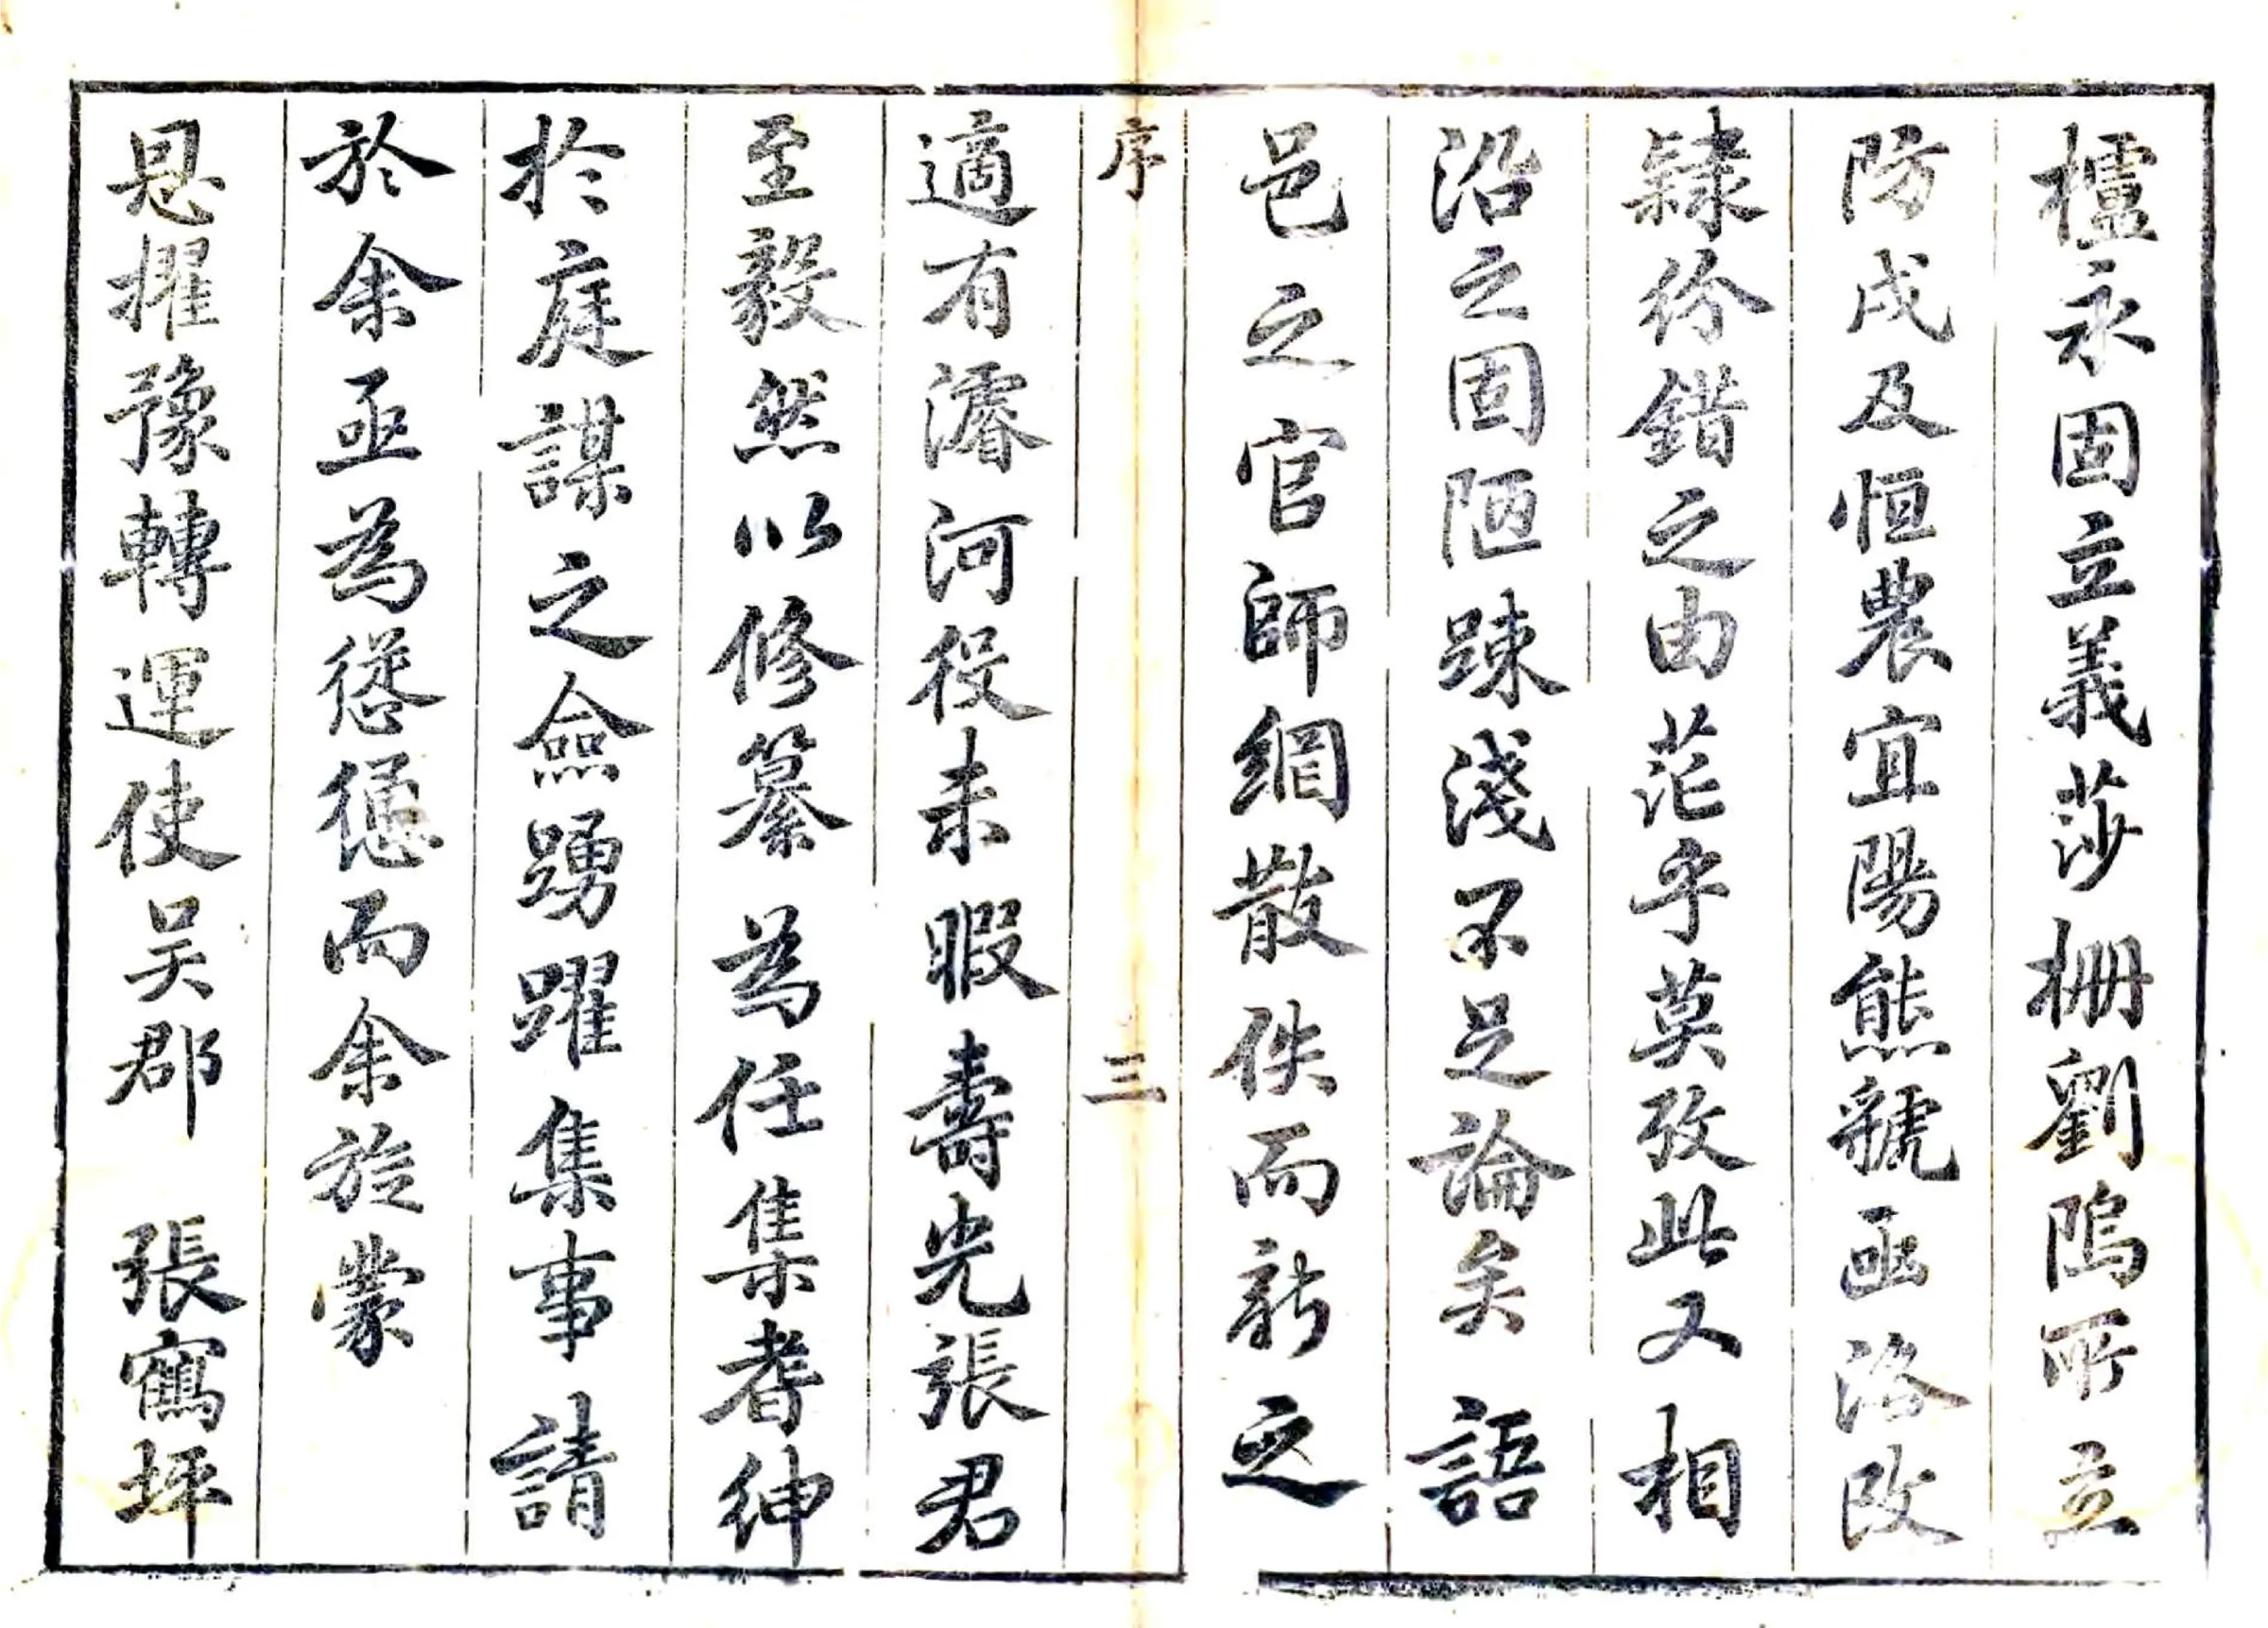 櫨永固立義莎柵劉隖所立
防戍及恒農宜陽熊虢函洛改
隸紛錯之由茫乎莫攷此又相
沿之固陋踈淺不足論矣語
邑之官師網散佚而新之
序 三
適有濬河役未暇壽光張君
至毅然以修纂為任集耆紳
於庭謀之僉踴躍集事請
於余亟為慫慂而余旋蒙
恩擢豫轉運使吴郡 張鶴坪